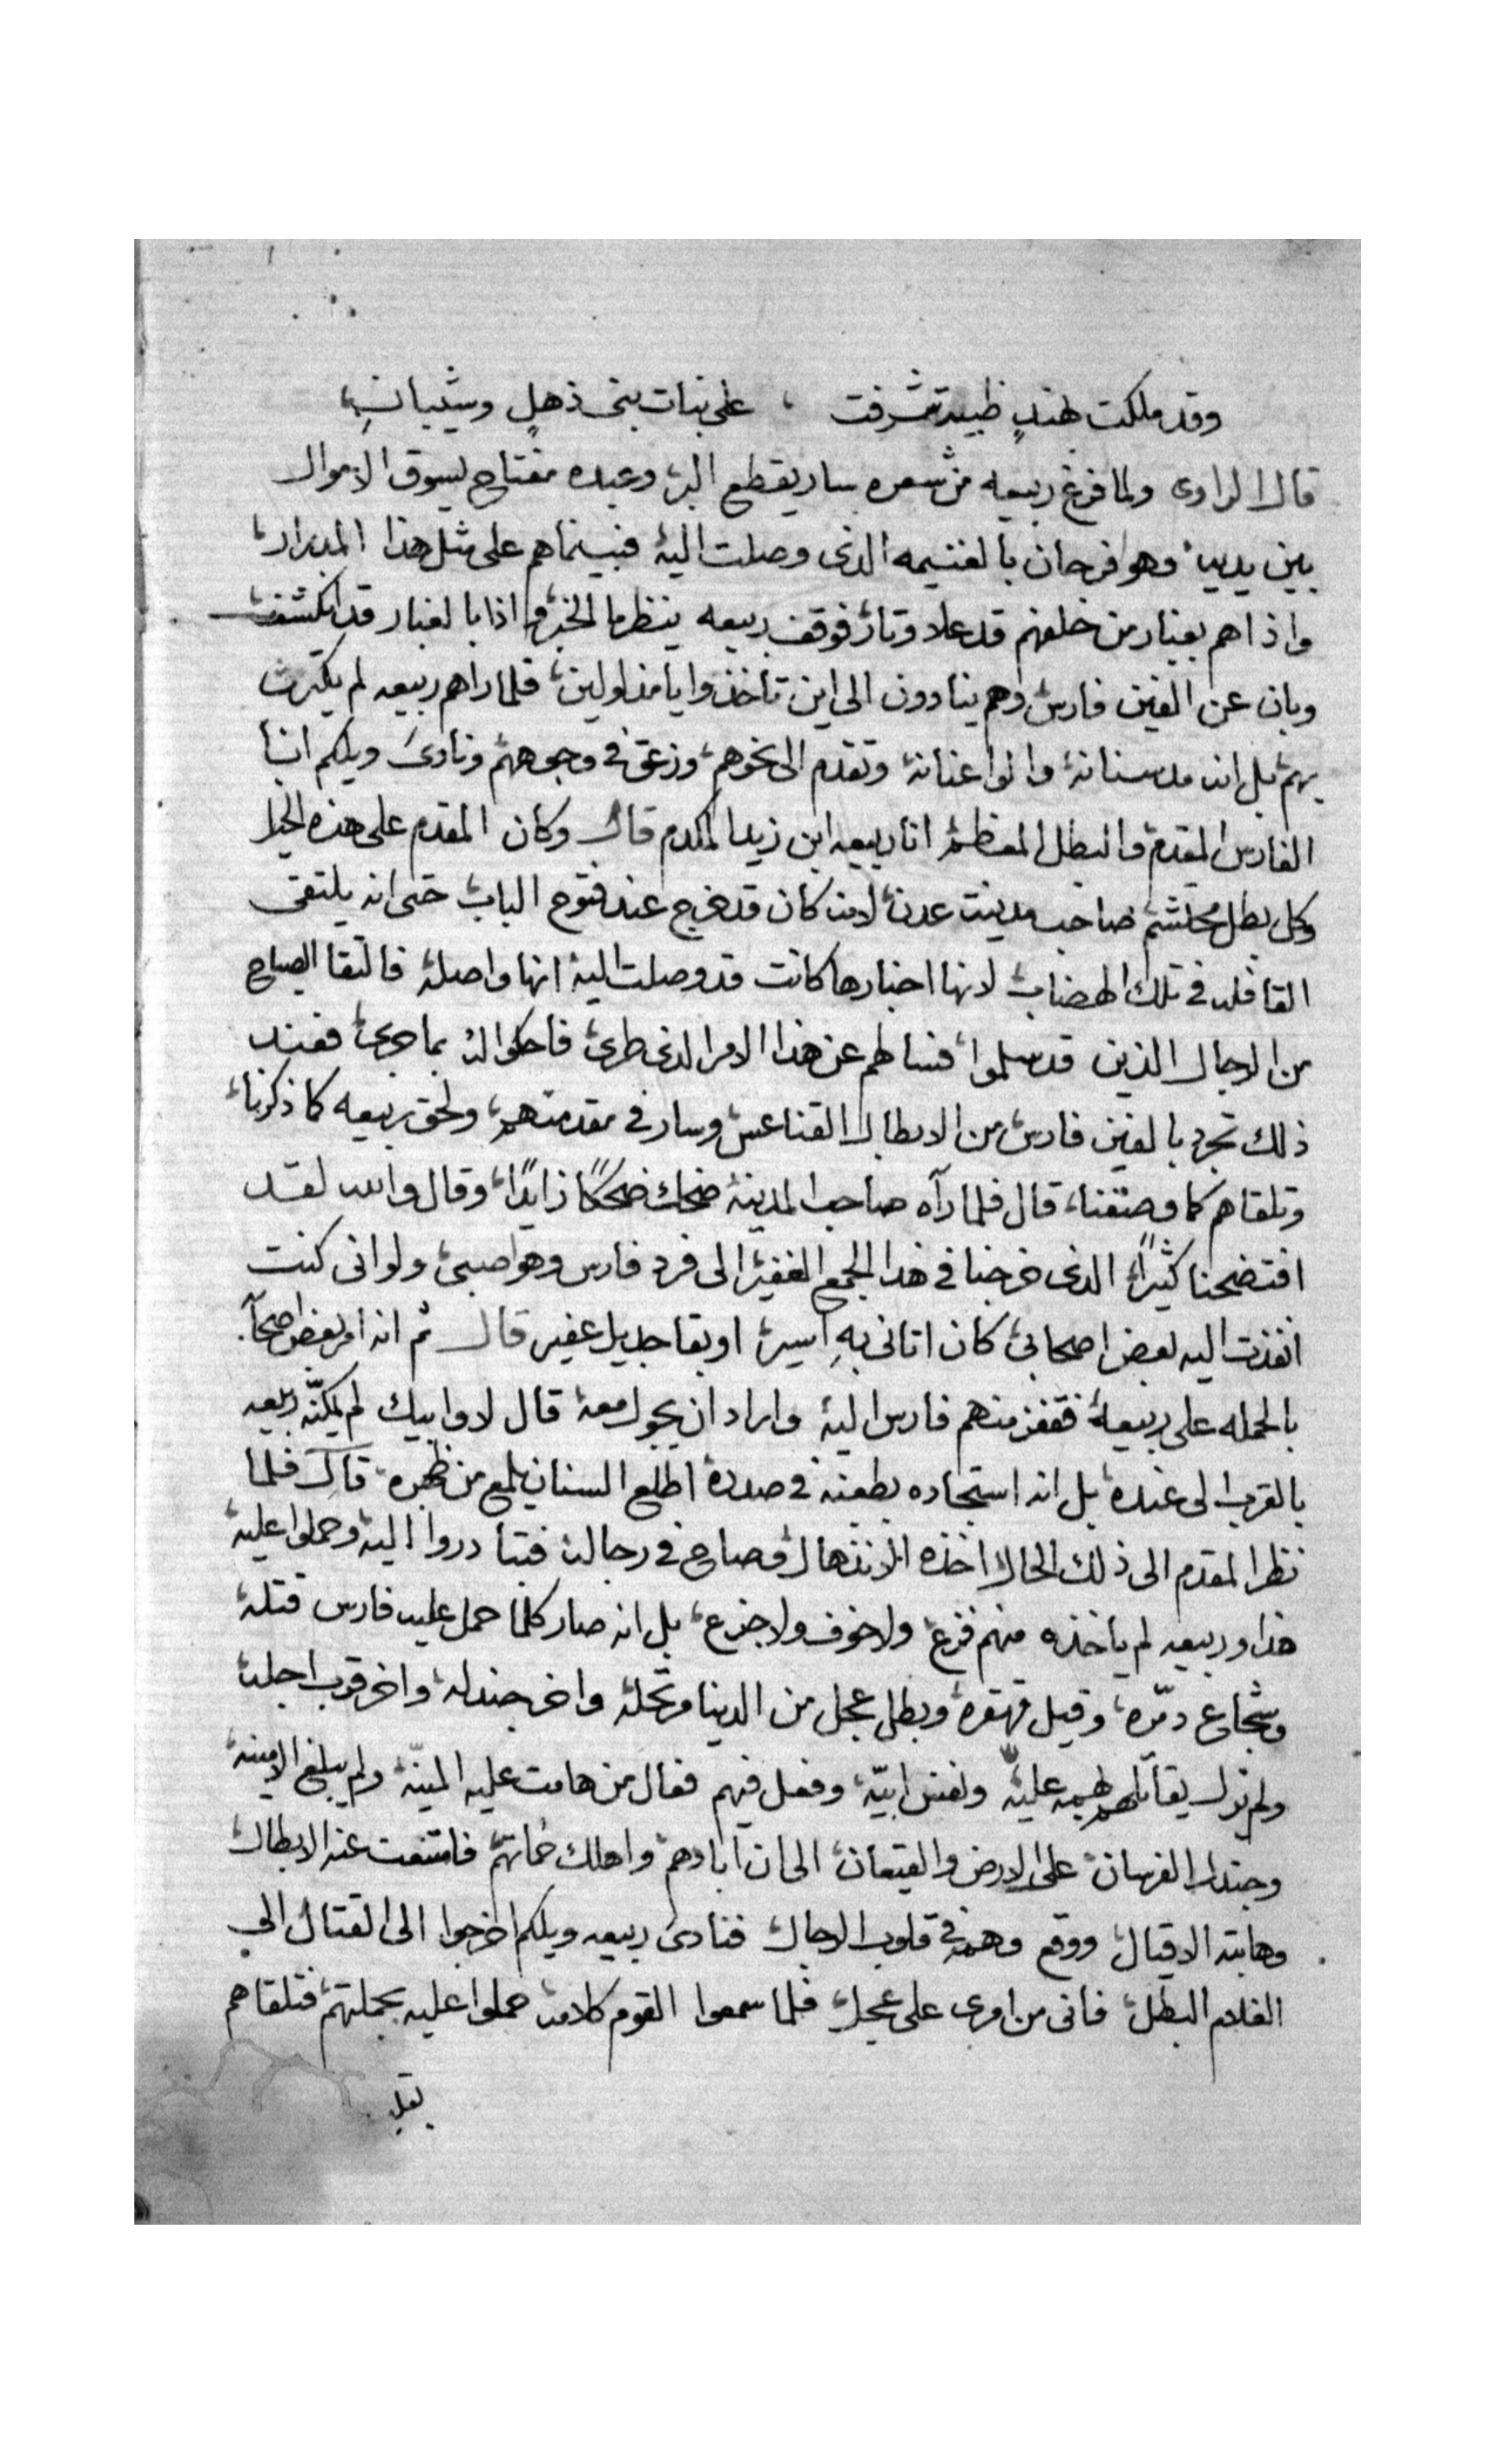 وقد ملكت لهندٍ ظبية تشرفت ، على بنات بنى ذهلٍ وشيبانِ
قال الراوى ولما فرغ ربيعه من شعره سار يقطع البر وعبده مفتاح يسوق الاموال
بين يديه وهو فرحان بالغنيمه الذى وصلت اليه فبينماهم على مثل هذا
واذاهم بغبار من خلفهم قد علا وثار فوقف ربيعه ينظر ما الخبر واذا بالغبار قد انكشف
وبان عن الفين فارس وهم ينادون الى اين تاخذ وايا فلما راهم ربيعه لم يكترث
بهم بل انه مد سنانه والوا عنانه وتقدم الى نحوهم وزعق فى وجوههم ونادى ويلكم انا
الفارس المقدم والبطل المعظم انا ربيعه ابن زيد المكدم قال وكان المقدم على هذه الخيل
وكل بطل محتشم صاحب مدينت عدن لانه كان قد خرج عند فتوح الباب حتى انه يلتقى
القافله فى تلك الهضاب لانها اخبارها كانت قد وصلت اليه انها واصله فالتقا الصباح
من الرجال الذين قد سلموا فسالهم عن هذا الامر الذى طرئ فاحكوا له بما جرئ فعند
ذلك تجرد بالفين فارس من الابطال القناعس وسار فى مقدمتهم ولحق ربيعه كما ذكرنا
وتلقاهم كما وصفنا قال فلما رآه صاحب المدينه ضحك ضحكًا زايدًا وقال والله لقد
افتضحنا كثيرًا الذى خرجنا فى هذا الجمع الغفير الى فرد فارس وهو صبى ولو انى كنت
انفذت اليه بعض اصحابى كان اتانى بهِ اسير او بقا جديل عفير قال ثم انه امر بعض اصحآبه
بالحمله على ربيعه فقفز منهم فارس اليه واراد ان يجول معه قال لا وابيك لم يمكنّه ربيعه
بالقرب الى عنده بل انه استجاده بطعنه فى صدره اطلع السنان يلمع من ظهره قال فلما
نظر المقدم الى ذلك الحال اخذه الانذهال وصاح فى رجاله فتبادروا اليه وحملوا عليه
هذا وربيعه لم ياخذه منهم فزع ولا خوف ولا جزع بل انه صار كلما حمل عليه فارس قتله
وشجاع دمّره وقيل قهقره وبطل عجل من الدينا مرتحله واخر جندله واخر قرب اجله
ولم يزل يقاتلهم بهمه عليّه ونفس ابيّه وفعل فيهم فعال من هامت عليه المنيّه ولم يبلغ الامنيه
وجندل الفرسان على الارض والقيعان الى ان ابادهم واهلك حماتهم فامتنعت عنه الابطال
وهابته الاقيال ووقع وهمه فى قلوب الرجال فنادى ربيعه ويلكم اخرجوا الى القتال الى
الغلام البطل فانى من امرى على عجل فلما سمعوا القوم كلامه حملوا عليه بجملتهم فتلقاهم
بقلب